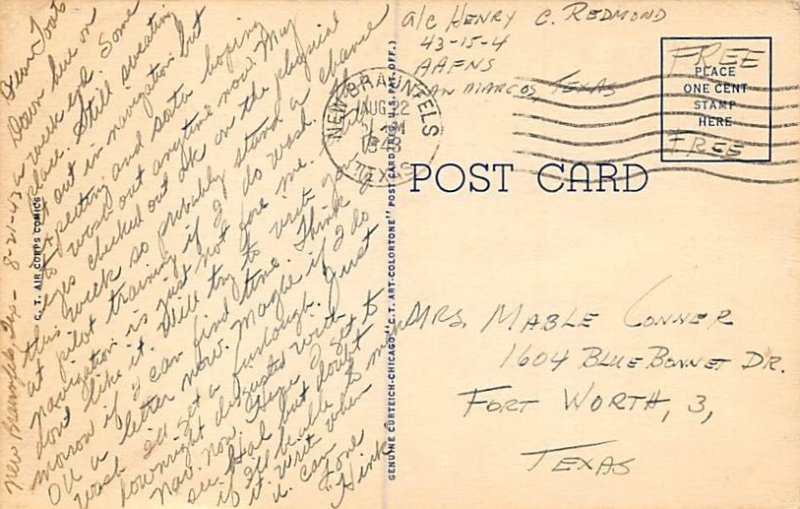 New Braunfels, Tex - 8-21-43
Dear Toots
Down here on
a week end. Some
place. Still sweating
it out in navigation but
expecting and sorta hoping
to wash out anytime now. My
eyes checked out ok on the physical
this week so probably stand a chance
at pilot training if I do wash.
Navigation is just not for me.
don't like it. Will try to write
morrow if I can find time. Think
a letter now. Maybe if I do
wash I'll get a furlough. Just
downright disgusted with
Nav. now. Hope I get to
see Hal but doubt
if I'll be able to
it. Write when
u. can
Love
Hink
C. T. AIR CORPS COMICS
GENUINE CURTEICH-CHICAGO "C. T. ART-COLORTONE" POST CARD (REG. U. S. PAT. OFF.)
A/C HENRY C. REDMOND
43-15-4
AAFNS
SAN MARCOS, TEXAS
NEW BRAUNFELS
AUG 22
1943
TEXAS
FREE
PLACE
ONE CENT
STAMP
HERE
FREE
POST CARD
MRS. MABLE CONNER
1604 BLUE BONNET DR.
FORT WORTH, 3,
TEXAS